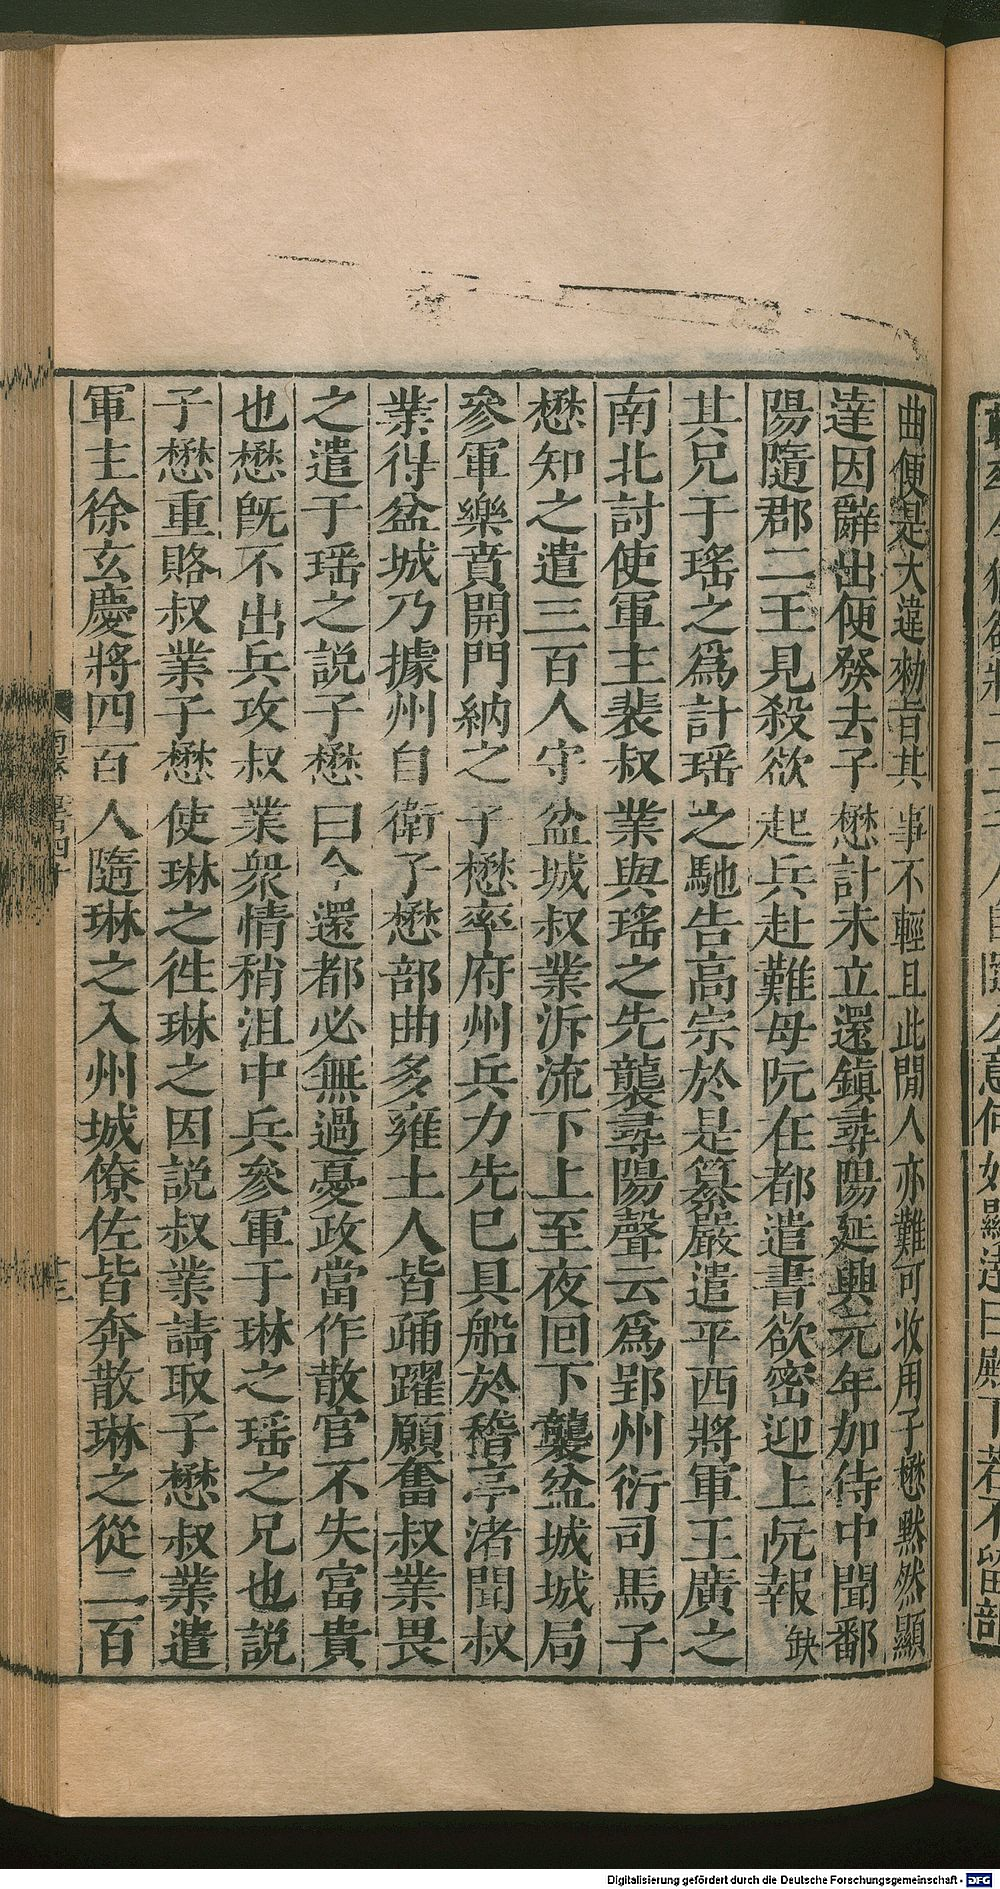 曲便是大違勑旨其事不輕且此閒人亦難可收用子懋黙然顯
達因辭出便發去子懋計未立還鎭尋陽延興元年加侍中聞鄱
陽隨郡二王見殺欲起兵赴難母阮在都遣書欲密迎上阮報缺
其兄于瑤之爲計瑶之馳告高宗於是纂嚴遣平西將軍王廣之
南北討使軍主裴叔業與瑤之先襲尋陽聲云爲郢州衍司馬子
懋知之遣三百人守盆城叔業泝流下上至夜囘下襲盆城城局
參軍樂賁開門納之子懋率府州兵力先巳具船於稽亭渚聞叔
業得盆城乃據州自衛子懋部曲多雍土人皆踊躍願奮叔業畏
之遣于瑶之說子懋曰今還都必無過憂政當作散官不失富貴
也懋旣不出兵攻叔業衆情稍沮中兵參軍于琳之瑶之兄也說
子懋重賂叔業子懋使琳之徃琳之因說叔業請取子懋叔業遣
軍主徐玄慶將四百人隨琳之入州城僚佐皆奔散琳之從二百
Digitalisierung gefördert durch die Deutsche Forschungsgemeinschaft - DFG